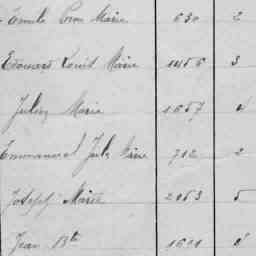 Emile Marie 630 2
Edouard Louis Marie 1456 3
Julien Marie 1657 4
Emmanuel Jules Marie 712 2
Joseph Marie 2053 5
Jean Bte